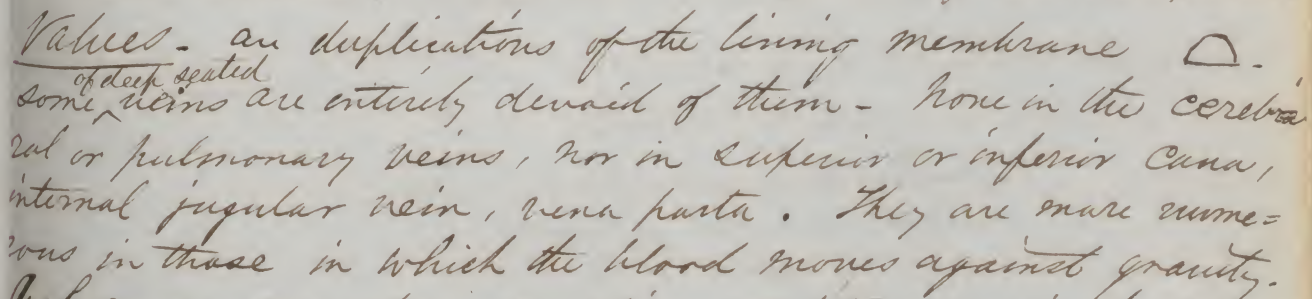 Valves - are duplications of the lining membrane
of deep seated
some veins are entirely devoid of them - None in the cereb
ral or pulmonary veins, nor in superior or inferior Cava,
internal jugular vein, vena porta. They are more nume=
rous in those in which the blood moves against gravity.